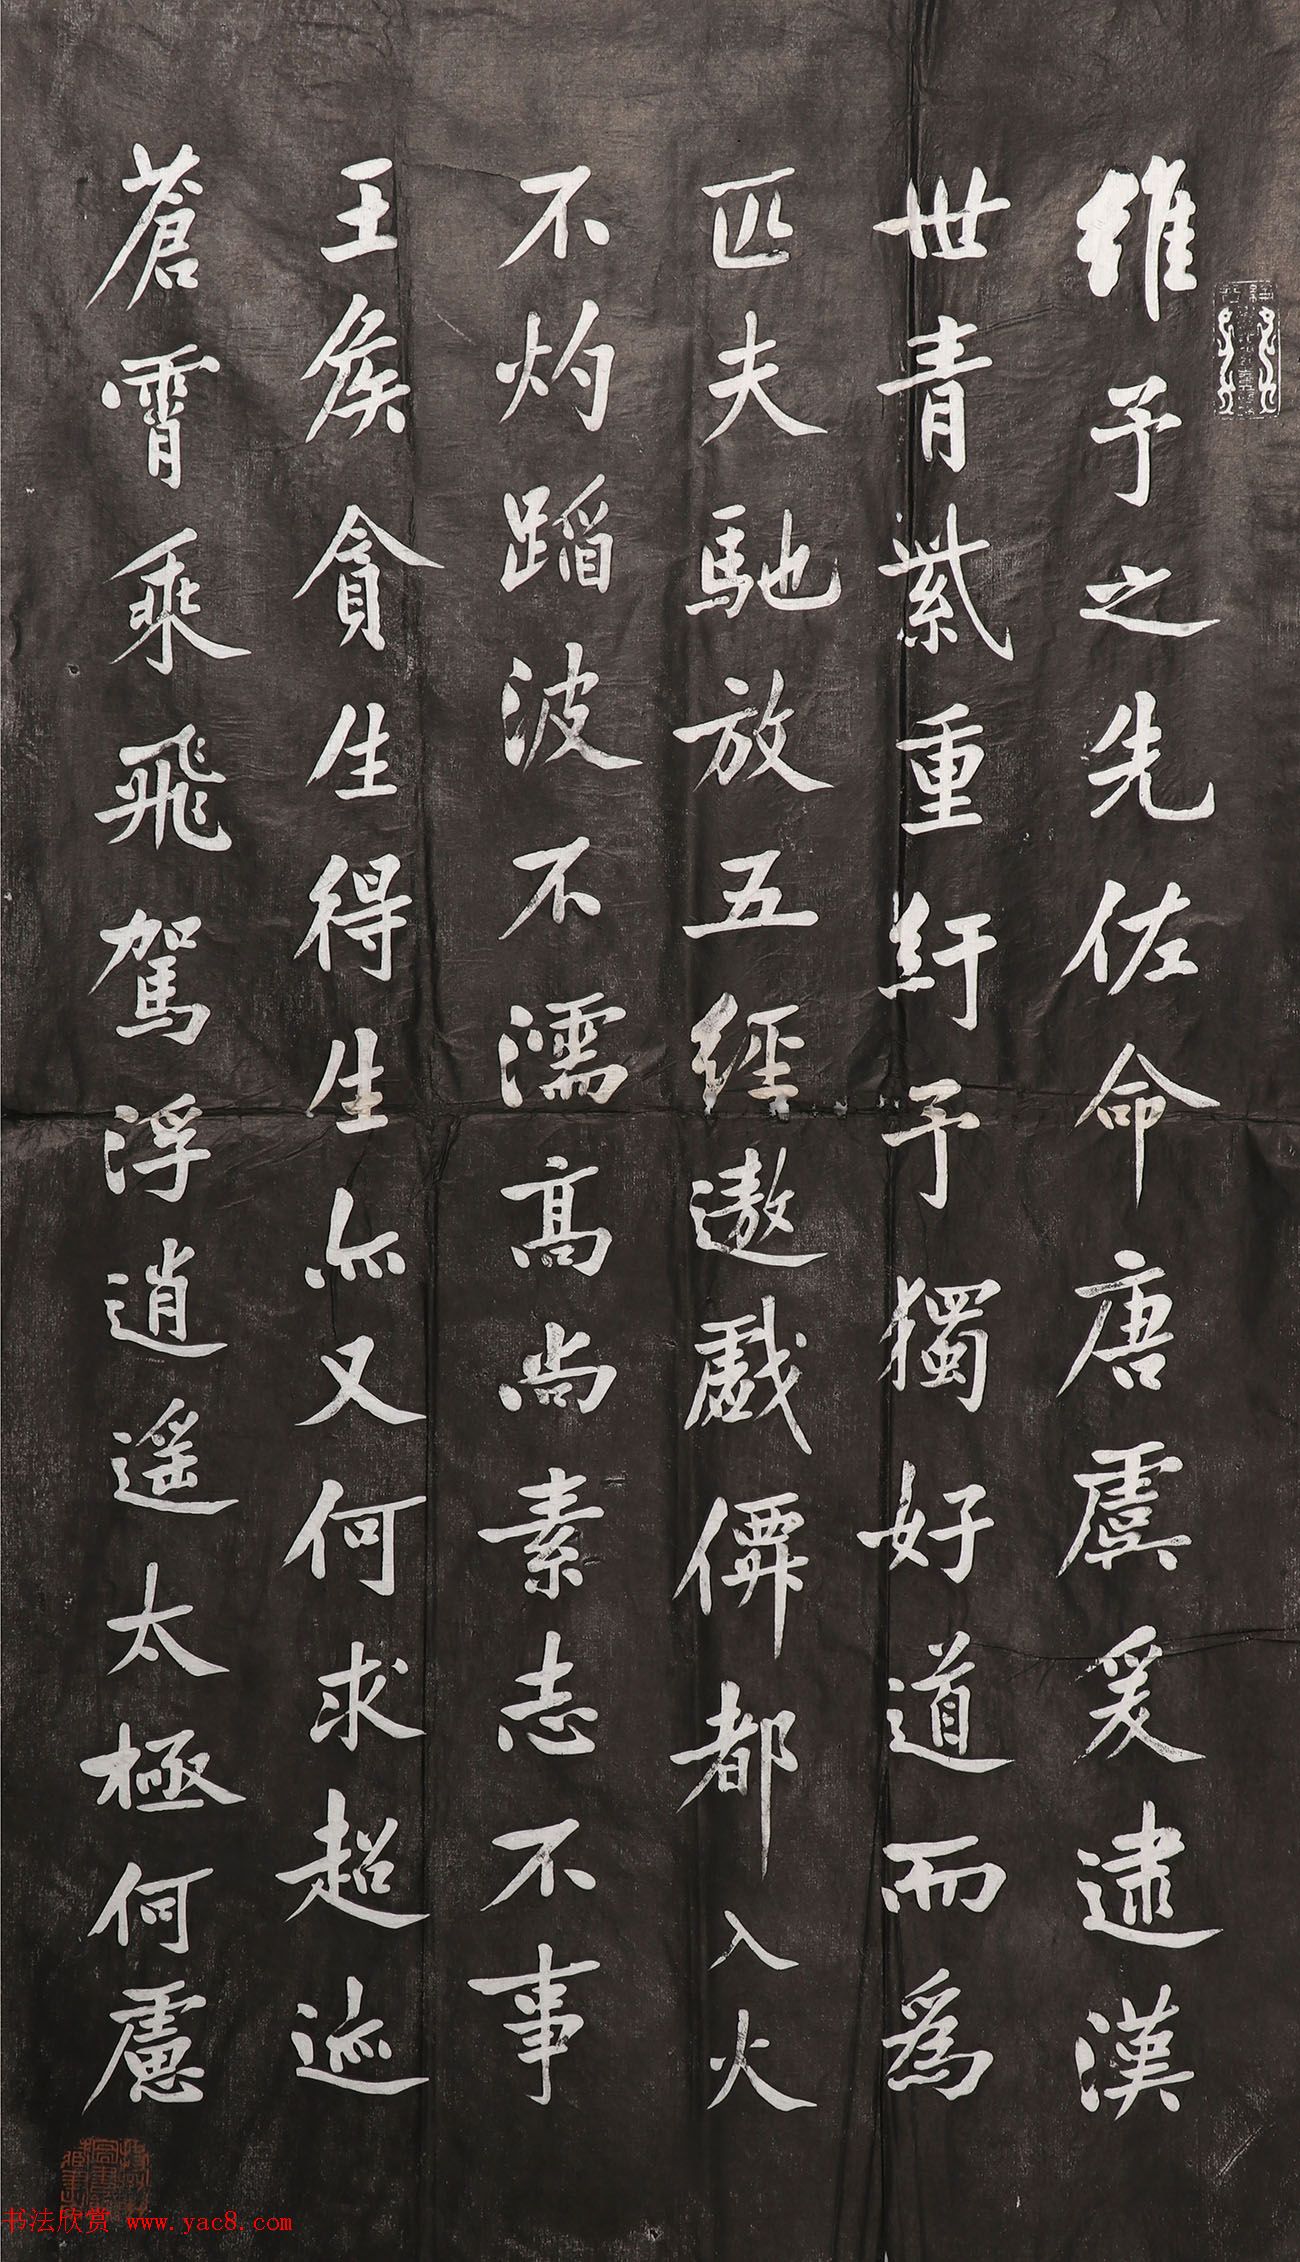 維予之先佐命唐虞爰逮漢
世青紫重紆予獨好道而為
匹夫馳放五經遨戲僊都入火
不灼蹈波不濡高尚素志不事
王矦貪生得生亦又何求超迹
蒼霄乘飛駕浮逍遥太極何慮
书法欣赏 www.yac8.com